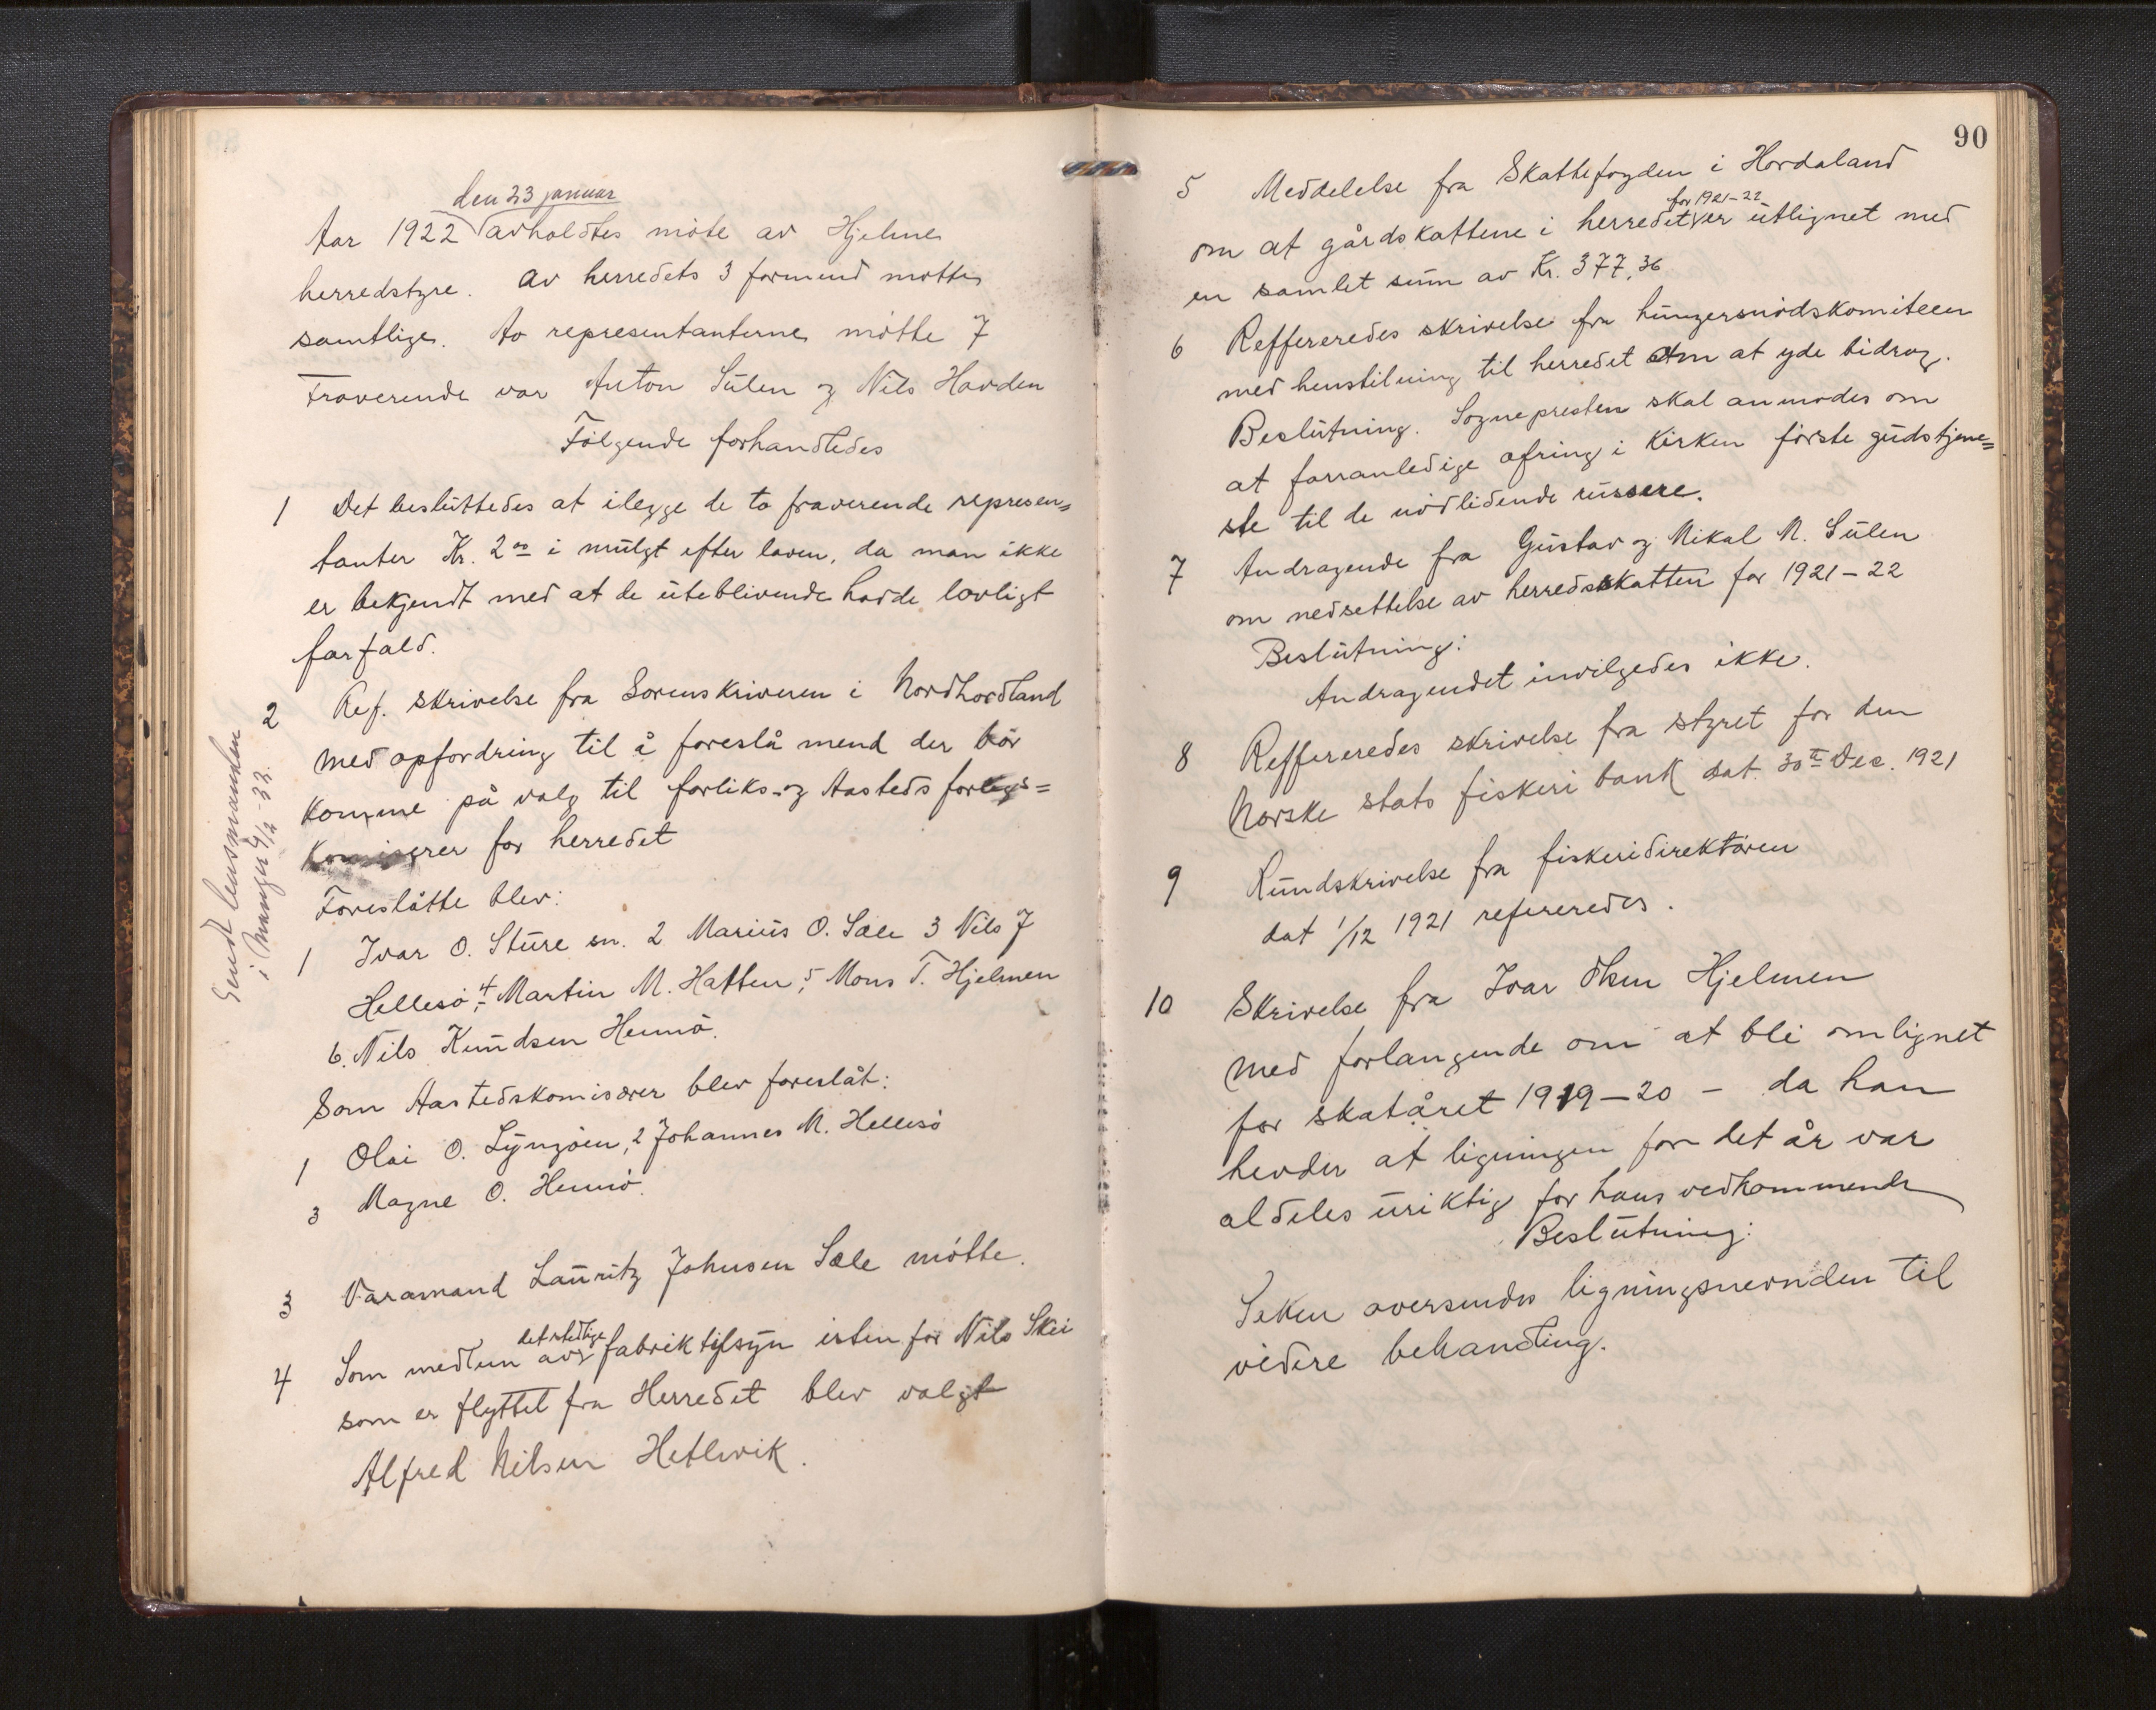 den 23 januar
Aar 1922 avholdtes möte av Hjelme
herredstyre. Av herredets 3 formend møtte
samtlige. Av representanterne møtte 7
Fraverende var Anton Sulen og Nils Havden
Følgende forhandledes
1 Det besluttedes at ilegge de to fraverende represen=
tanter Kr. 2 00 i mulgt efter loven, da man ikke
er bekjendt med at de uteblivende hadde lovligt
farfald.
2 Ref. skrivelse fra Sorenskriveren i Nordhordland
med opfordring til å foreslå mend der bör
komme på valg til forliks- og Aasteds
for herredet
Foreslåtte blev:
1 Ivar O. Sture sn. 2 Marius O. Sæle 3 Nils J
Hellesö, 4 Martin M. Hatten, 5 Mons T. Hjelmen
6. Nils Knudsen Hernö.
Som Aastedskomisærer blev foreslåt:
1 Olai O. Lyngöen, 2 Johannes M. Hellesö
3 Magne O. Hernö.
3 Varamand Lauritz Johnsen Sæle mötte.
4 Som medlem av det stedlige fabriktilsyn isten for Nils Skei
som er flyttet fra Herredet blev valgt
Alfred Nilsen Hetlevik.
Sendt lensmanden
i Manger 9/2-23.
90
5 Meddelelse fra Skattefogden i Hordaland
om at gårdskattene i herredet for 1921-22 er utlignet med
en samlet sum av Kr. 377,36
6 Reffereredes skrivelse fra hungersnödskomiteen
med henstilning til herredet om at yde bidrag.
Beslutning. Sognepresten skal anmodes om
at forranledige ofring i Kirken förste gudstjene=
ste til de nödlidende russere.
7 Andragende fra Gustav og Mikal N. Sulen
om nedsettelse av herredskatten for 1921-22
Beslutning:
Andragendet invilgedes ikke.
8 Reffereredes skrivelse fra styret for den
Norske stats fiskeri bank dat. 30te Dec. 1921
9 Rundskrivelse fra fiskeridirektören
dat 1/12 1921 refereredes.
10 Skrivelse fra Ivar Olsen Hjelmen
med forlangende om at bli omlignet
for skatåret 1919-20 - da han
hevder at ligningen for det år var
aldeles uriktig for hans vedkommende
Beslutning:
Seken oversendes ligningsnevnden til
videre behandling.